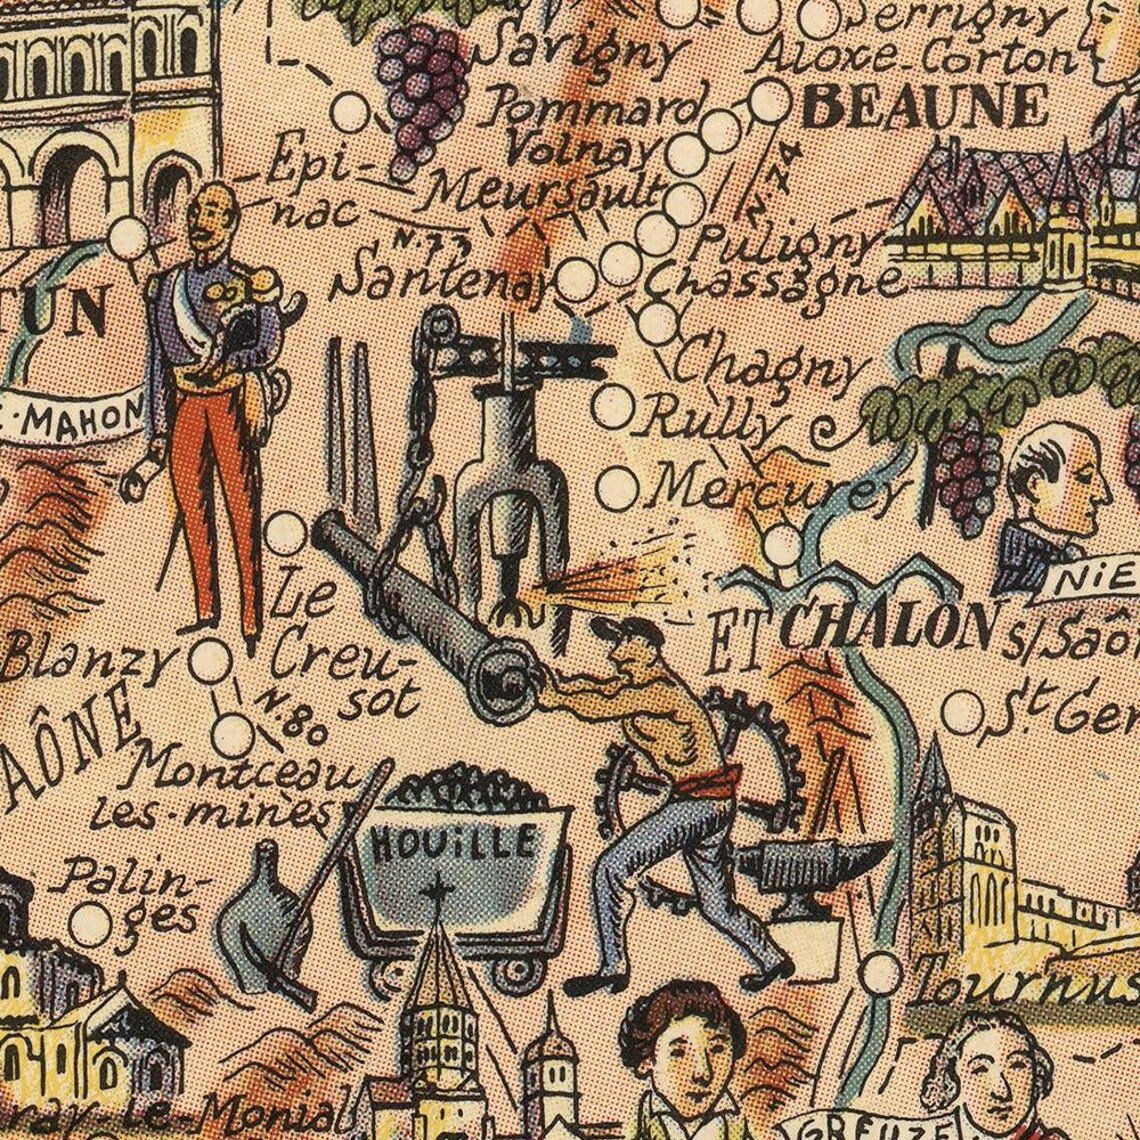 Serrigny
Savigny
Aloxe-Corton
Pommard
BEAUNE
Volnay
Epi-
nac
Meursault
N.74
N.73
Puligny
Santenay
Chassagne
TUN
Chagny
MAHON
Rully
Mercurey
NiE
Le
Creu-
sot
ET CHALON s/Saô
Blanzy
St Ger
N.80
AÔNE
Montceau
les-mines
HOUiLLE
Palin-
ges
Tournus
ray-le-Monial
GREUZE